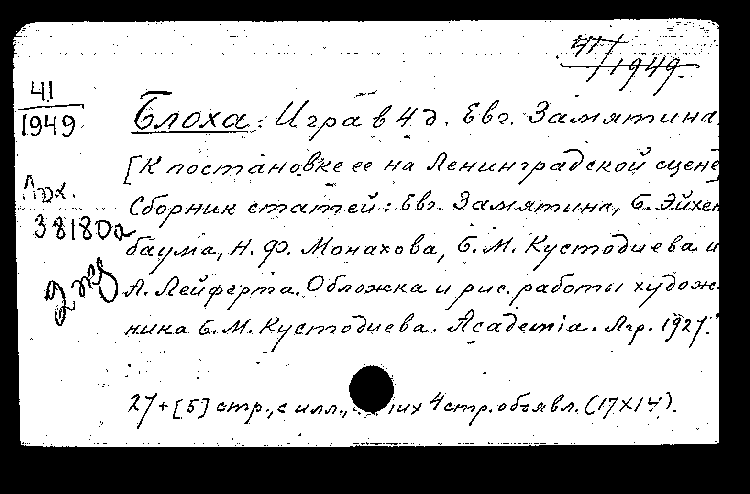 41/
/1949.
41
1949
Блоха. Игра в 4 д. Евг. Замятина.
[К постановке ее на Ленинградской сцене]
Сборник статей: Евг. Замятина, Б. Эйхен
баума, Н. Ф. Монахова, Б. М. Кустодиева и
А. Лейферта. Обложка и рис. работы худож
ника Б. М. Кустодиева. Academia. Лгр. 1927.
38180а
27+[5] стр., с илл., них 4 стр. объявл. (17×14).